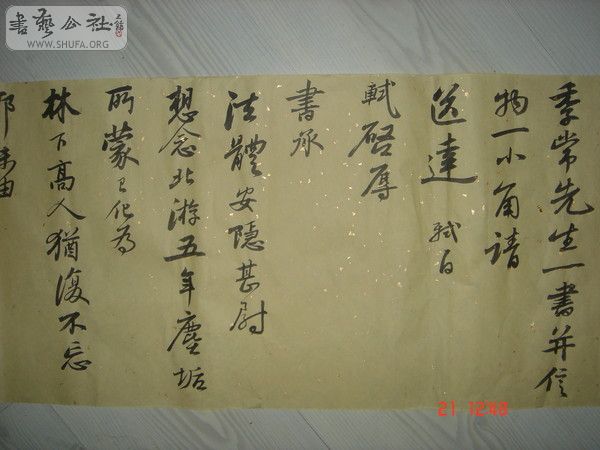 書藝公社
WWW.SHUFA.ORG
季常先生一書并信
物一小角請
送達 軾白
軾啓辱
書承
法體安隱甚尉
想念北游五年塵垢
所蒙已化為
林下高人猶復不忘
耶未由
21 12:48